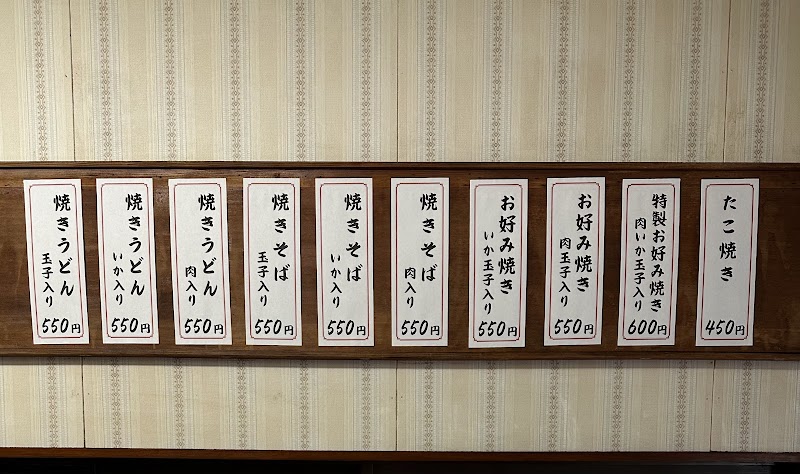 たこ焼き
450円
特製お好み焼き
肉いか玉子入り
600円
お好み焼き
肉玉子入り
550円
お好み焼き
いか玉子入り
550円
焼きそば
肉入り
550円
焼きそば
いか入り
550円
焼きそば
玉子入り
550円
焼きうどん
肉入り
550円
焼きうどん
いか入り
550円
焼きうどん
玉子入り
550円